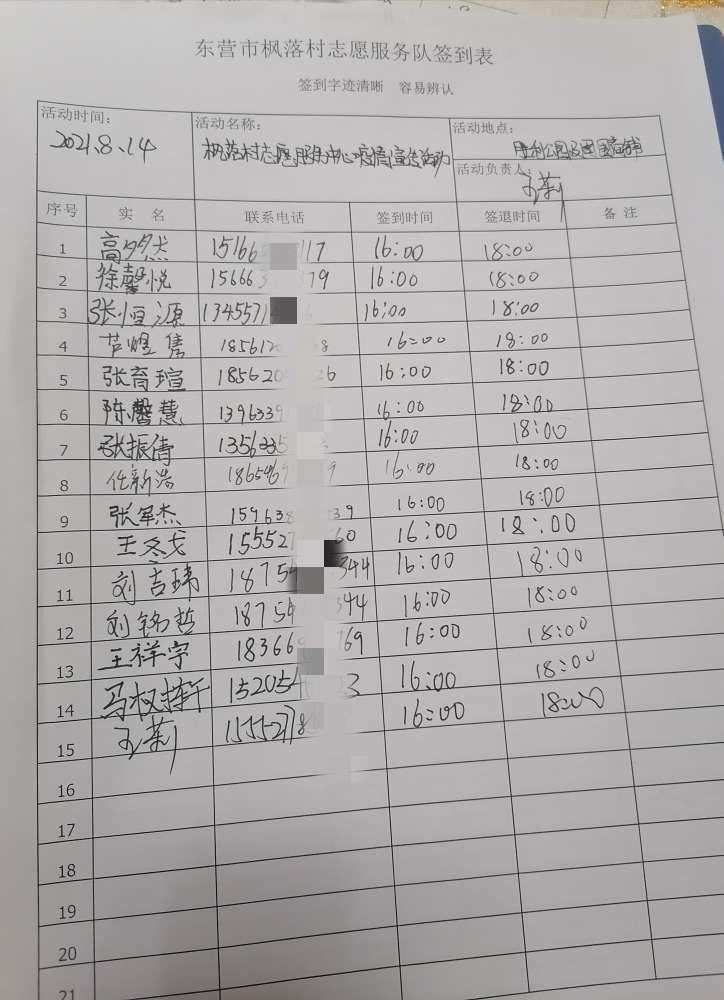 东营市枫落村志愿服务队签到表
签到字迹清晰 容易辨认
活动时间: 活动名称: 活动地点:
2021.8.14 枫落村志愿服务中心疫情宣传活动 胜利公园及周围商铺
活动负责人: 王莉
序号 实 名 联系电话 签到时间 签退时间 备 注
1 高 杰 15166 117 16:00 18:00
2 徐馨悦 15666 79 16:00 18:00
3 张恒源 1345571 16:00 18:00
4 隽 185612 8 16:00 18:00
5 张育瑄 185620 26 16:00 18:00
6 陈馨慧 1396339 16:00 18:00
7 张振倩 1356335 16:00 18:00
8 任新浩 1865469 9 16:00 18:00
9 张军杰 159638 39 16:00 18:00
10 王冬戈 15552 60 16:00 18:00
11 刘吉玮 1875 344 16:00 18:00
12 刘铭哲 1875 344 16:00 18:00
13 王祥宇 18366 769 16:00 18:00
14 马权 152054 3 16:00 18:00
15 王莉 1555278 16:00 18:00
16
17
18
19
20
21